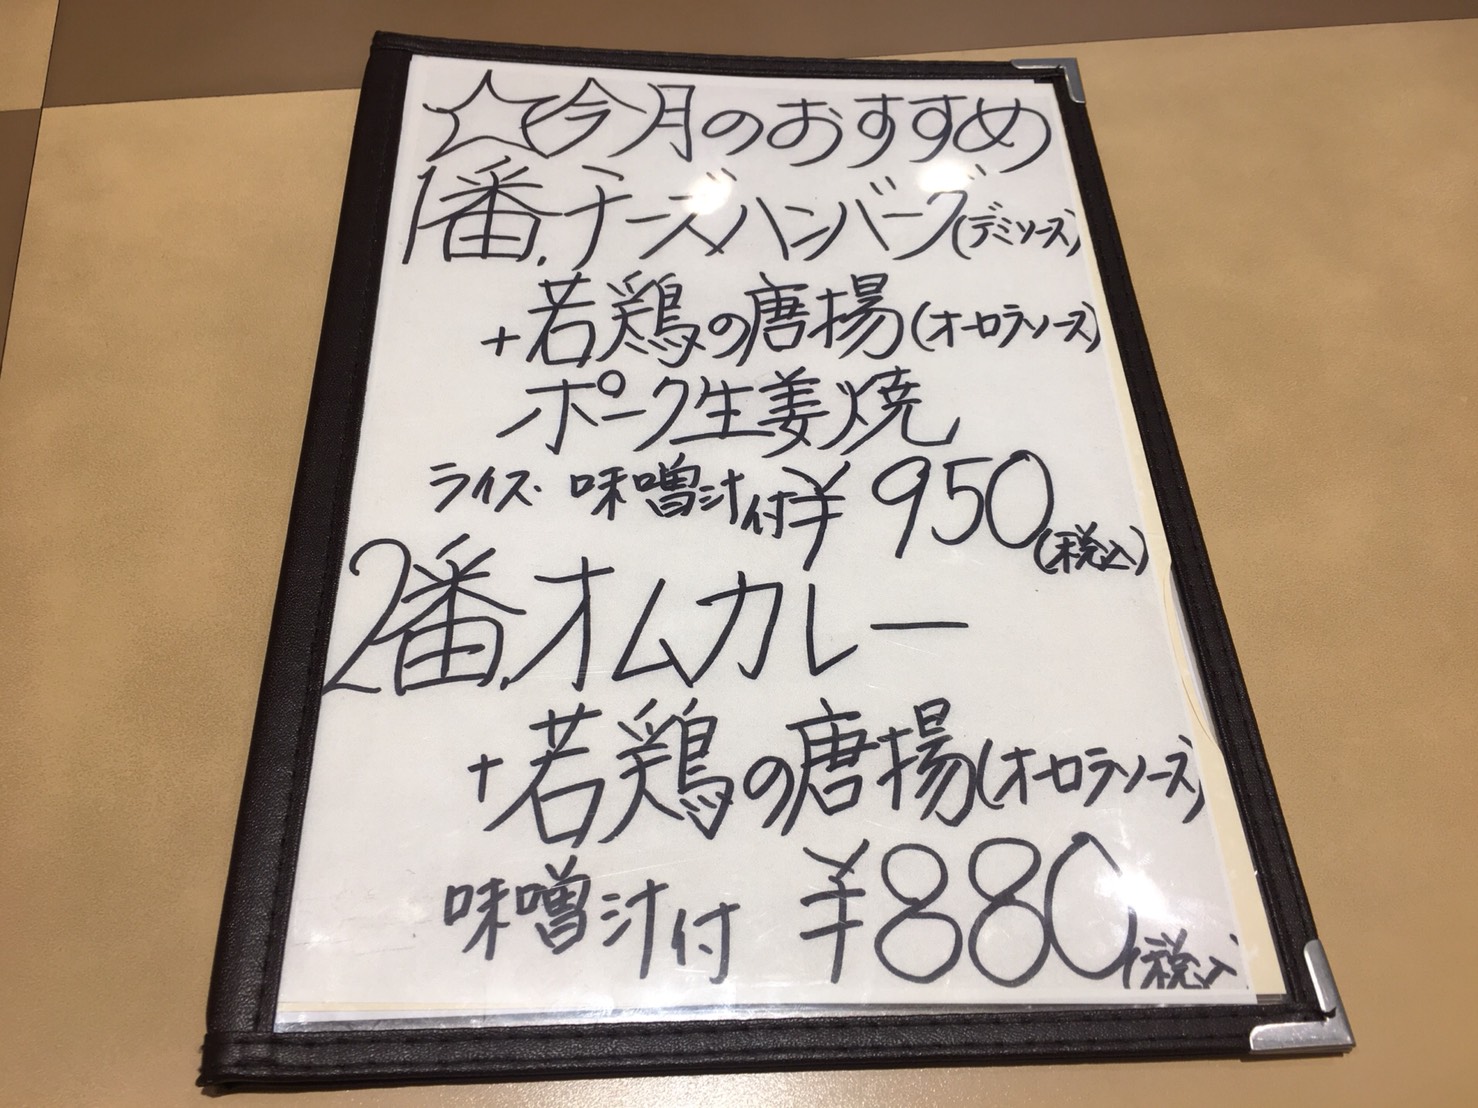 ☆今月のおすすめ
1番.チーズハンバーグ(デミソース)
+若鶏の唐揚(オーロラソース)
ポーク生姜焼
ライス・味噌汁付¥950(税込)
2番.オムカレー
+若鶏の唐揚(オーロラソース)
味噌汁付 ¥880(税込)